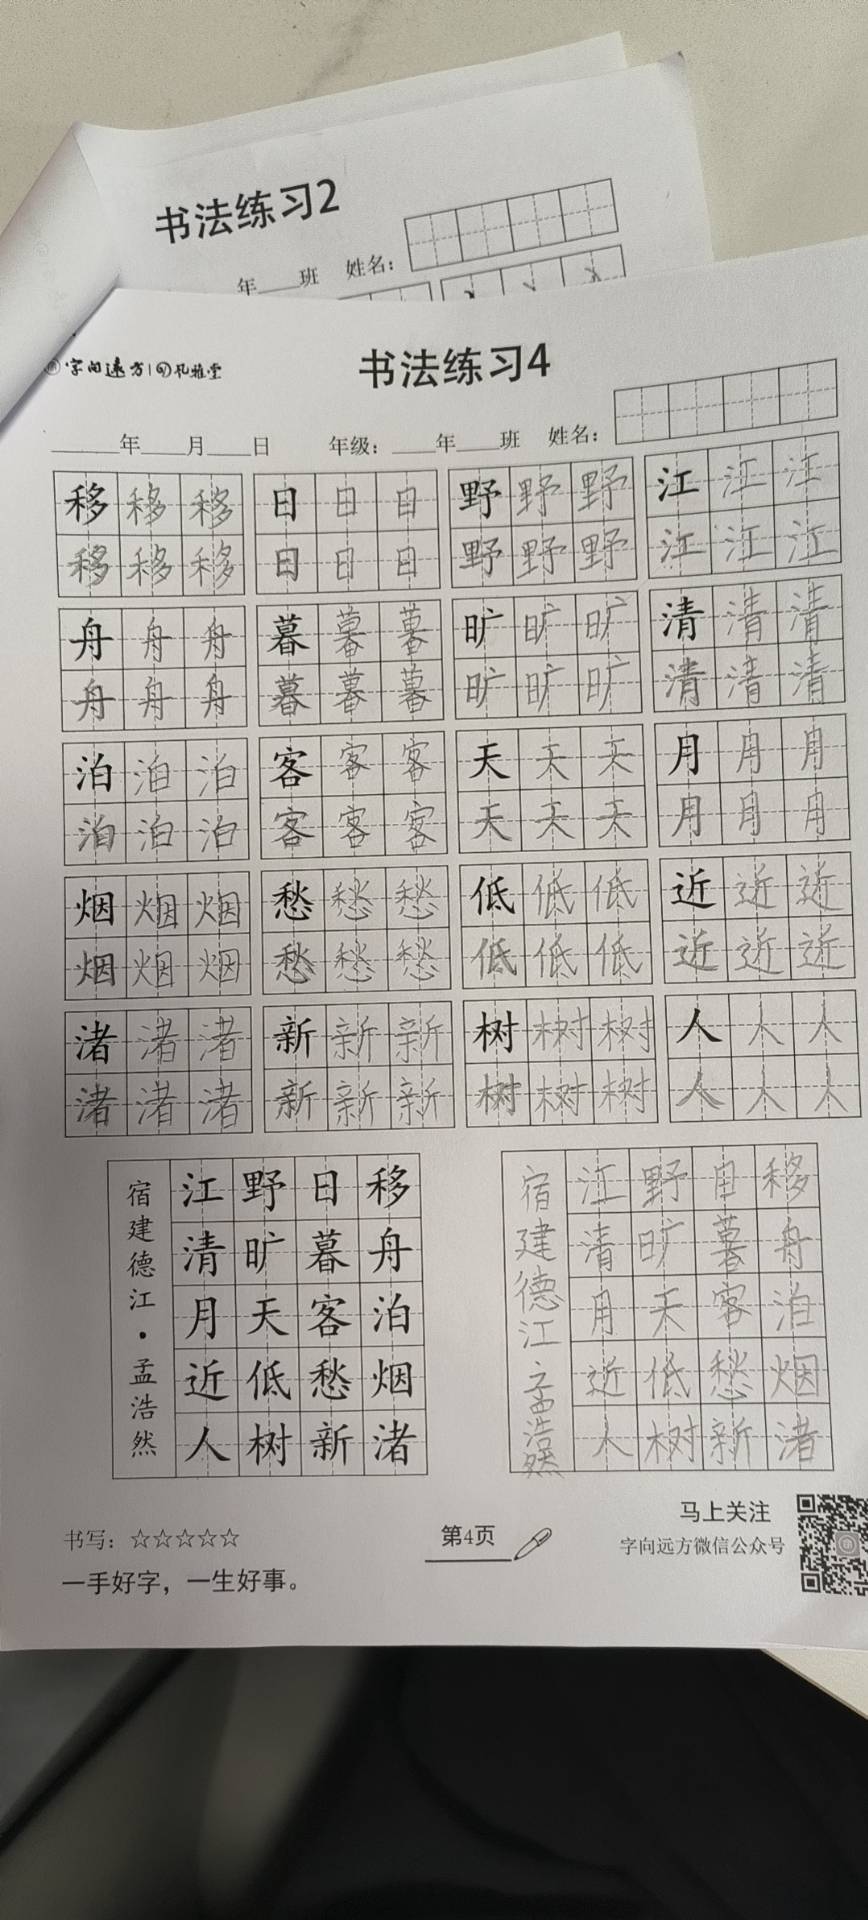 书法练习2
年 班 姓名：
字向远方 孔雅堂
书法练习4
年 月 日 年级： 年 班 姓名：
移移移 日日日 野野野 江江江
移移移 日日日 野野野 江江江
舟舟舟 暮暮暮 旷旷旷 清清清
舟舟舟 暮暮暮 旷旷旷 清清清
泊泊泊 客客客 天天天 月月月
泊泊泊 客客客 天天天 月月月
烟烟烟 愁愁愁 低低低 近近近
烟烟烟 愁愁愁 低低低 近近近
渚渚渚 新新新 树树树 人人人
渚渚渚 新新新 树树树 人人人
移舟泊烟渚
日暮客愁新
野旷天低树
江清月近人
宿建德江·孟浩然
移舟泊烟渚
日暮客愁新
野旷天低树
江清月近人
宿建德江 孟浩然
书写：☆☆☆☆☆
一手好字，一生好事。
第4页
马上关注
字向远方微信公众号